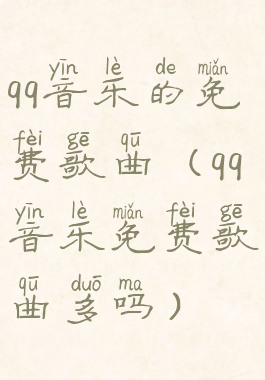 yīn lè de miǎn
qq音乐的免
fèi gē qū
费歌曲（qq
yīn lè miǎn fèi gē
音乐免费歌
qū duō ma
曲多吗）